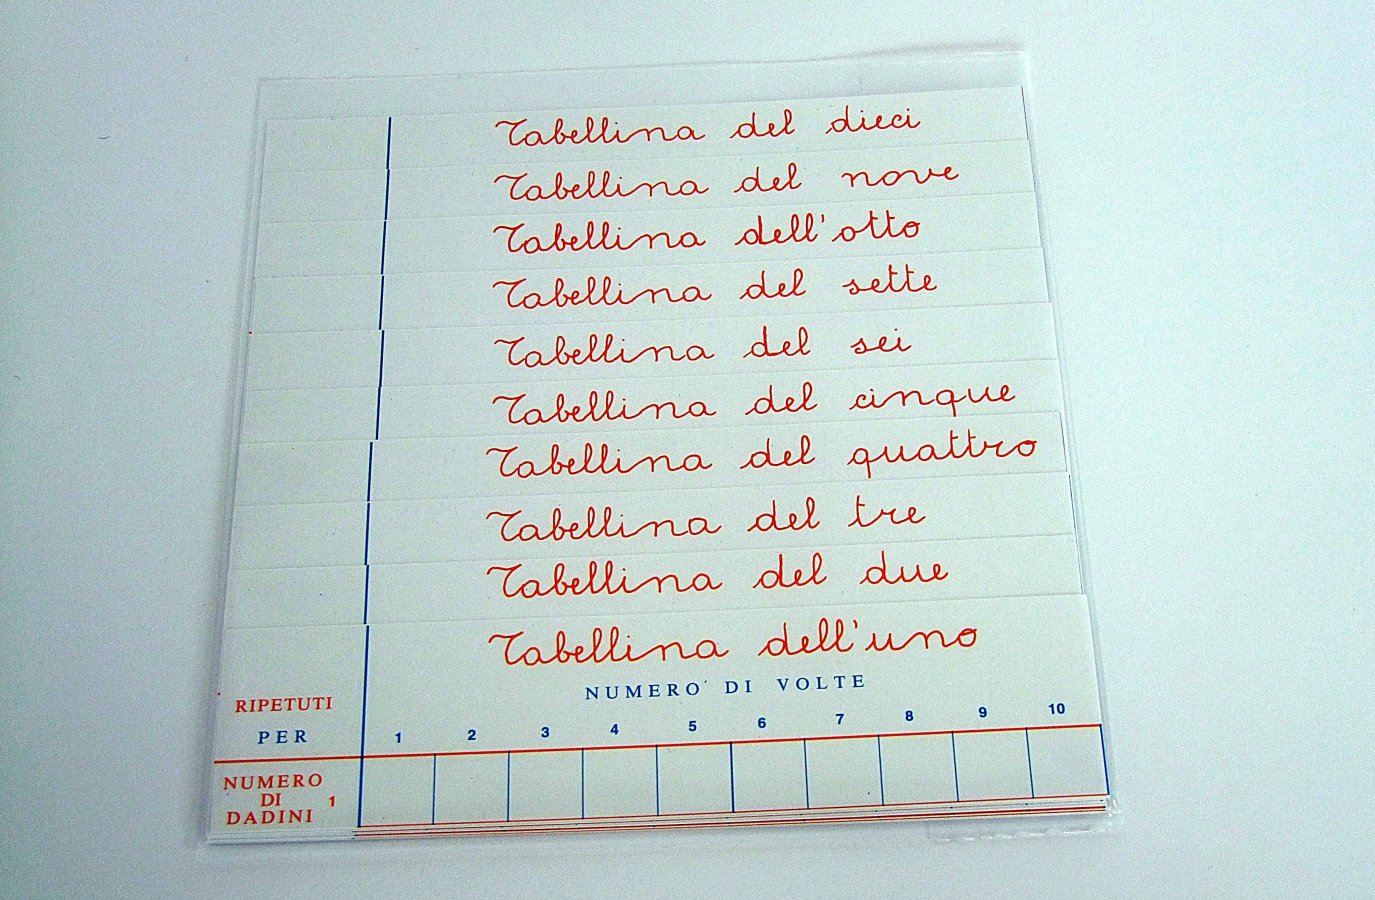 Tabellina del dieci
Tabellina del nove
Tabellina dell'otto
Tabellina del sette
Tabellina del sei
Tabellina del cinque
Tabellina del quattro
Tabellina del tre
Tabellina del due
Tabellina dell'uno
NUMERO DI VOLTE
RIPETUTI
PER 1 2 3 4 5 6 7 8 9 10
NUMERO
DI 1
DADINI